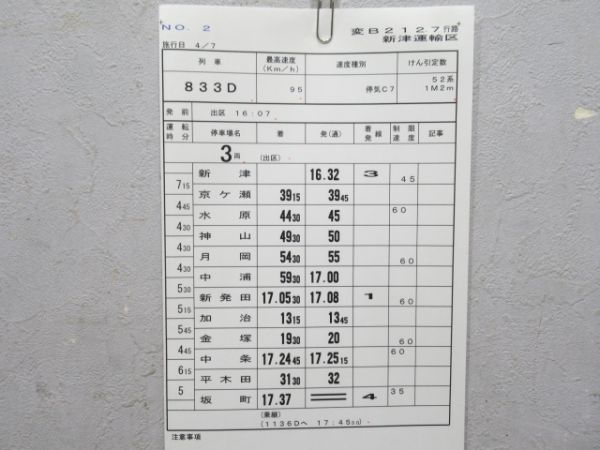 NO. 2
変B212.7行路
新津運輸区
施行日 4/7
列車 最高速度(Km/h) 速度種別 けん引定数
833D 95 停気C7 52系 1M2m
発前 出区 16:07
運転時分 停車場名 着 発(通) 着発線 制限速度 記事
3両 (出区)
新津 16.32 3 45
7 15
京ケ瀬 39 15 39 45
4 45
水原 44 30 45 60
4 30
神山 49 30 50
4 30
月岡 54 30 55 60
4 30
中浦 59 30 17.00
5 30
新発田 17.05 30 17.08 1 60
5 15
加治 13 15 13 45
5 45
金塚 19 30 20 60
4 45
中条 17.24 45 17.25 15 60
6 15
平木田 31 30 32
5
坂町 17.37 4 35
(乗継)
(1136Dへ 17:45
注意事項